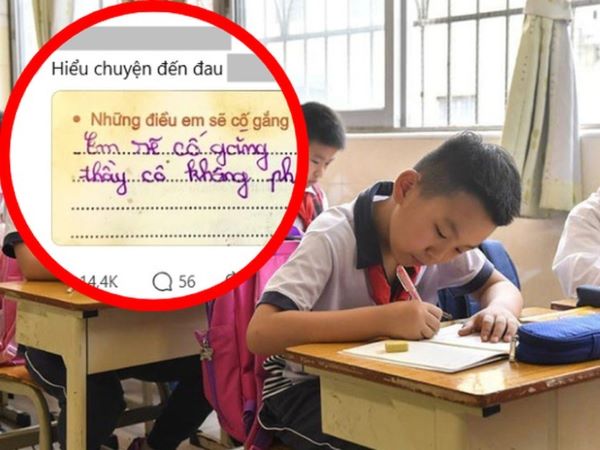 Hiểu chuyện đến đau
• Những điều em sẽ cố gắng
Em sẽ cố gắng
thầy cô không ph
14,4K 56